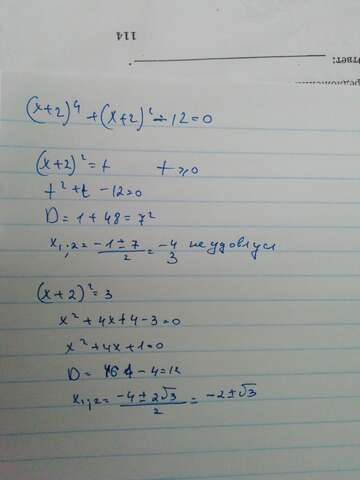 114
(x+2)⁴ + (x+2)² - 12 = 0
(x+2)² = t t ≥ 0
t² + t - 12 = 0
D = 1 + 48 = 7²
x₁;₂ = (-1 ± 7)/2 = -4 не удовл
3
(x+2)² = 3
x² + 4x + 4 - 3 = 0
x² + 4x + 1 = 0
D = 16 - 4 = 12
x₁;₂ = (-4 ± 2√3)/2 = -2 ± √3